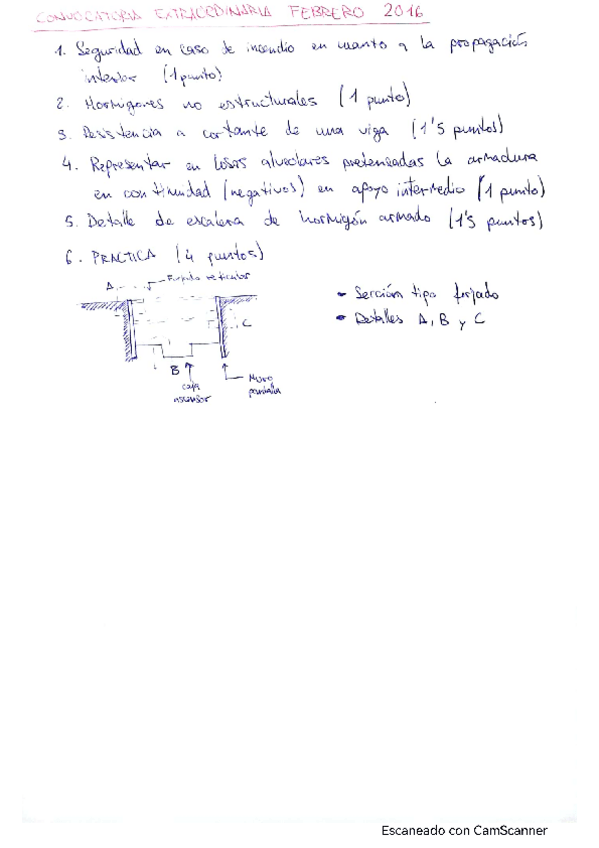 CONVOCATORIA EXTRAORDINARIA FEBRERO 2016
1. Seguridad en caso de incendio en cuanto a la propagación
interior (1 punto)
2. Hormigones no estructurales (1 punto)
3. Resistencia a cortante de una viga (1'5 puntos)
4. Representar en losas alveolares pretensadas la armadura
en continuidad (negativos) en apoyo intermedio (1 punto)
5. Detalle de escalera de hormigón armado (1'5 puntos)
6. PRACTICA (4 puntos)
A
Forjado reticular
- Sección tipo forjado
- Detalles A, B y C
C
B
caja
ascensor
Muro
pantalla
Escaneado con CamScanner